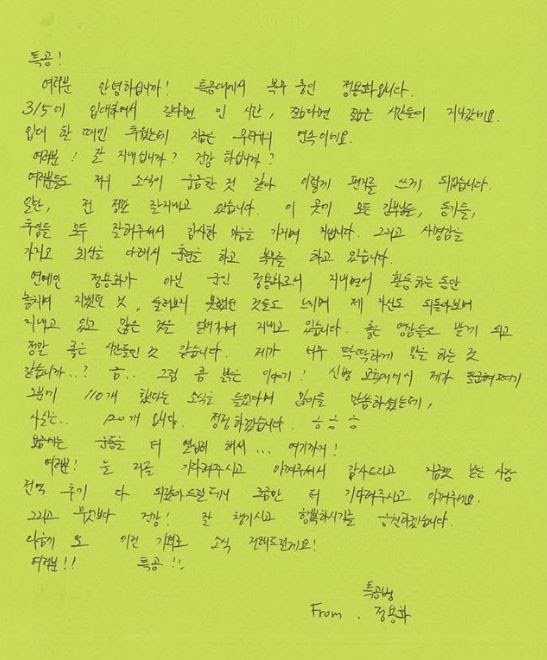 특공!
여러분 안녕하십니까! 특공대에서 복무 중인 정용화입니다.
3/5에 입대해서 길다면 긴 시간, 짧다면 짧은 시간들이 지나갔네요.
입대 한 때엔 추웠는데 지금은 무더위의 연속이네요.
여러분! 잘 지내십니까? 건강 하십니까?
여러분들도 저의 소식이 궁금한 것 같아 이렇게 편지를 쓰게 되었습니다.
일단, 전 정말 잘지내고 있습니다. 이 곳의 모든 간부님들, 동기들,
후임들 모두 잘해주셔서 감사한 마음을 가지며 지냅니다. 그리고 사명감을
가지고 최선을 다해서 훈련을 하고 복무를 하고 있습니다.
연예인 정용화가 아닌 군인 정용화로서 지내면서 활동하는 동안
놓치며 지냈던 것, 살펴보지 못했던 것들도 느끼며 제 자신도 되돌아보며
지내고 있고 많은 것을 담아가며 지내고 있습니다. 좋은 영감들도 받게 되고
정말 좋은 시간들인 것 같습니다. 제가 너무 딱딱하게 말을 하는 것
같습니까..? 음.. 그럼 좀 밝은 이야기! 신병 교육대에서 제가 팔굽혀펴기
그렇게 110개 했다는 소식을 들으시며 많이들 말씀하셨는데,
사실은.. 120개 입니다. 정정하겠습니다. ㅎㅎㅎ
요즘에는 운동을 더 열심히 해서... 여기까지!
여러분! 늘 저를 기다려주시고 아껴주셔서 감사드리고 지금껏 받은 사랑
전역 후에 다 되돌려드릴테니 조금만 더 기다려주시고 아껴주세요.
그리고 무엇보다 건강! 잘 챙기시고 행복하시기를 응원하겠습니다.
다음에 또 이런 기회로 소식 전해드릴게요!
여러분!! 특공!!
특공병
From. 정용화